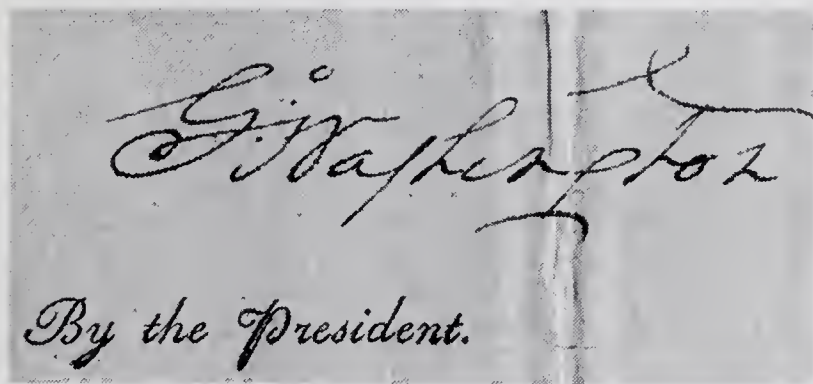 G:Washington
By the President.